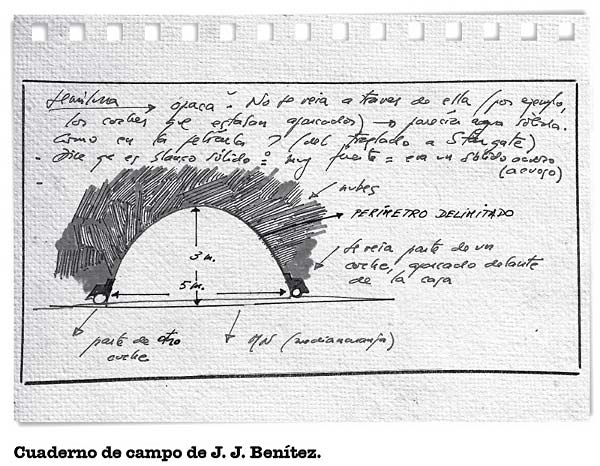 semiluna → opaca. No se veia a traves de ella (por ejemplo,
los coches que estaban aparcados) → parecia agua sólida.
Como en la película 7 (del teplado a Stargate)
- Dice qe es blanco sólido = muy fuerte = era un sólido acuoso
(acuoso)
nubes
PERÍMETRO DELIMITADO
3 m.
se veia parte de un
coche, aparcado delante
de la casa
5 m.
parte de otro
coche
MN (media naranja)
Cuaderno de campo de J. J. Benítez.